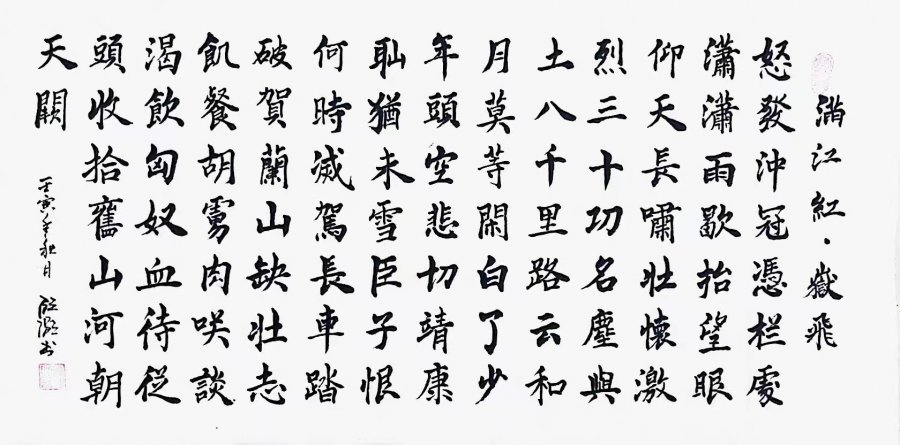 滿江紅·嶽飛
怒發沖冠憑栏處
瀟瀟雨歇抬望眼
仰天長嘯壮懷激
烈三十功名塵與
土八千里路云和
月莫等閑白了少
年頭空悲切靖康
耻猶未雪臣子恨
何時滅駕長車踏
破賀蘭山缺壮志
飢餐胡虜肉咲談
渴飲匈奴血待從
頭收拾舊山河朝
天闕
壬寅年秋月